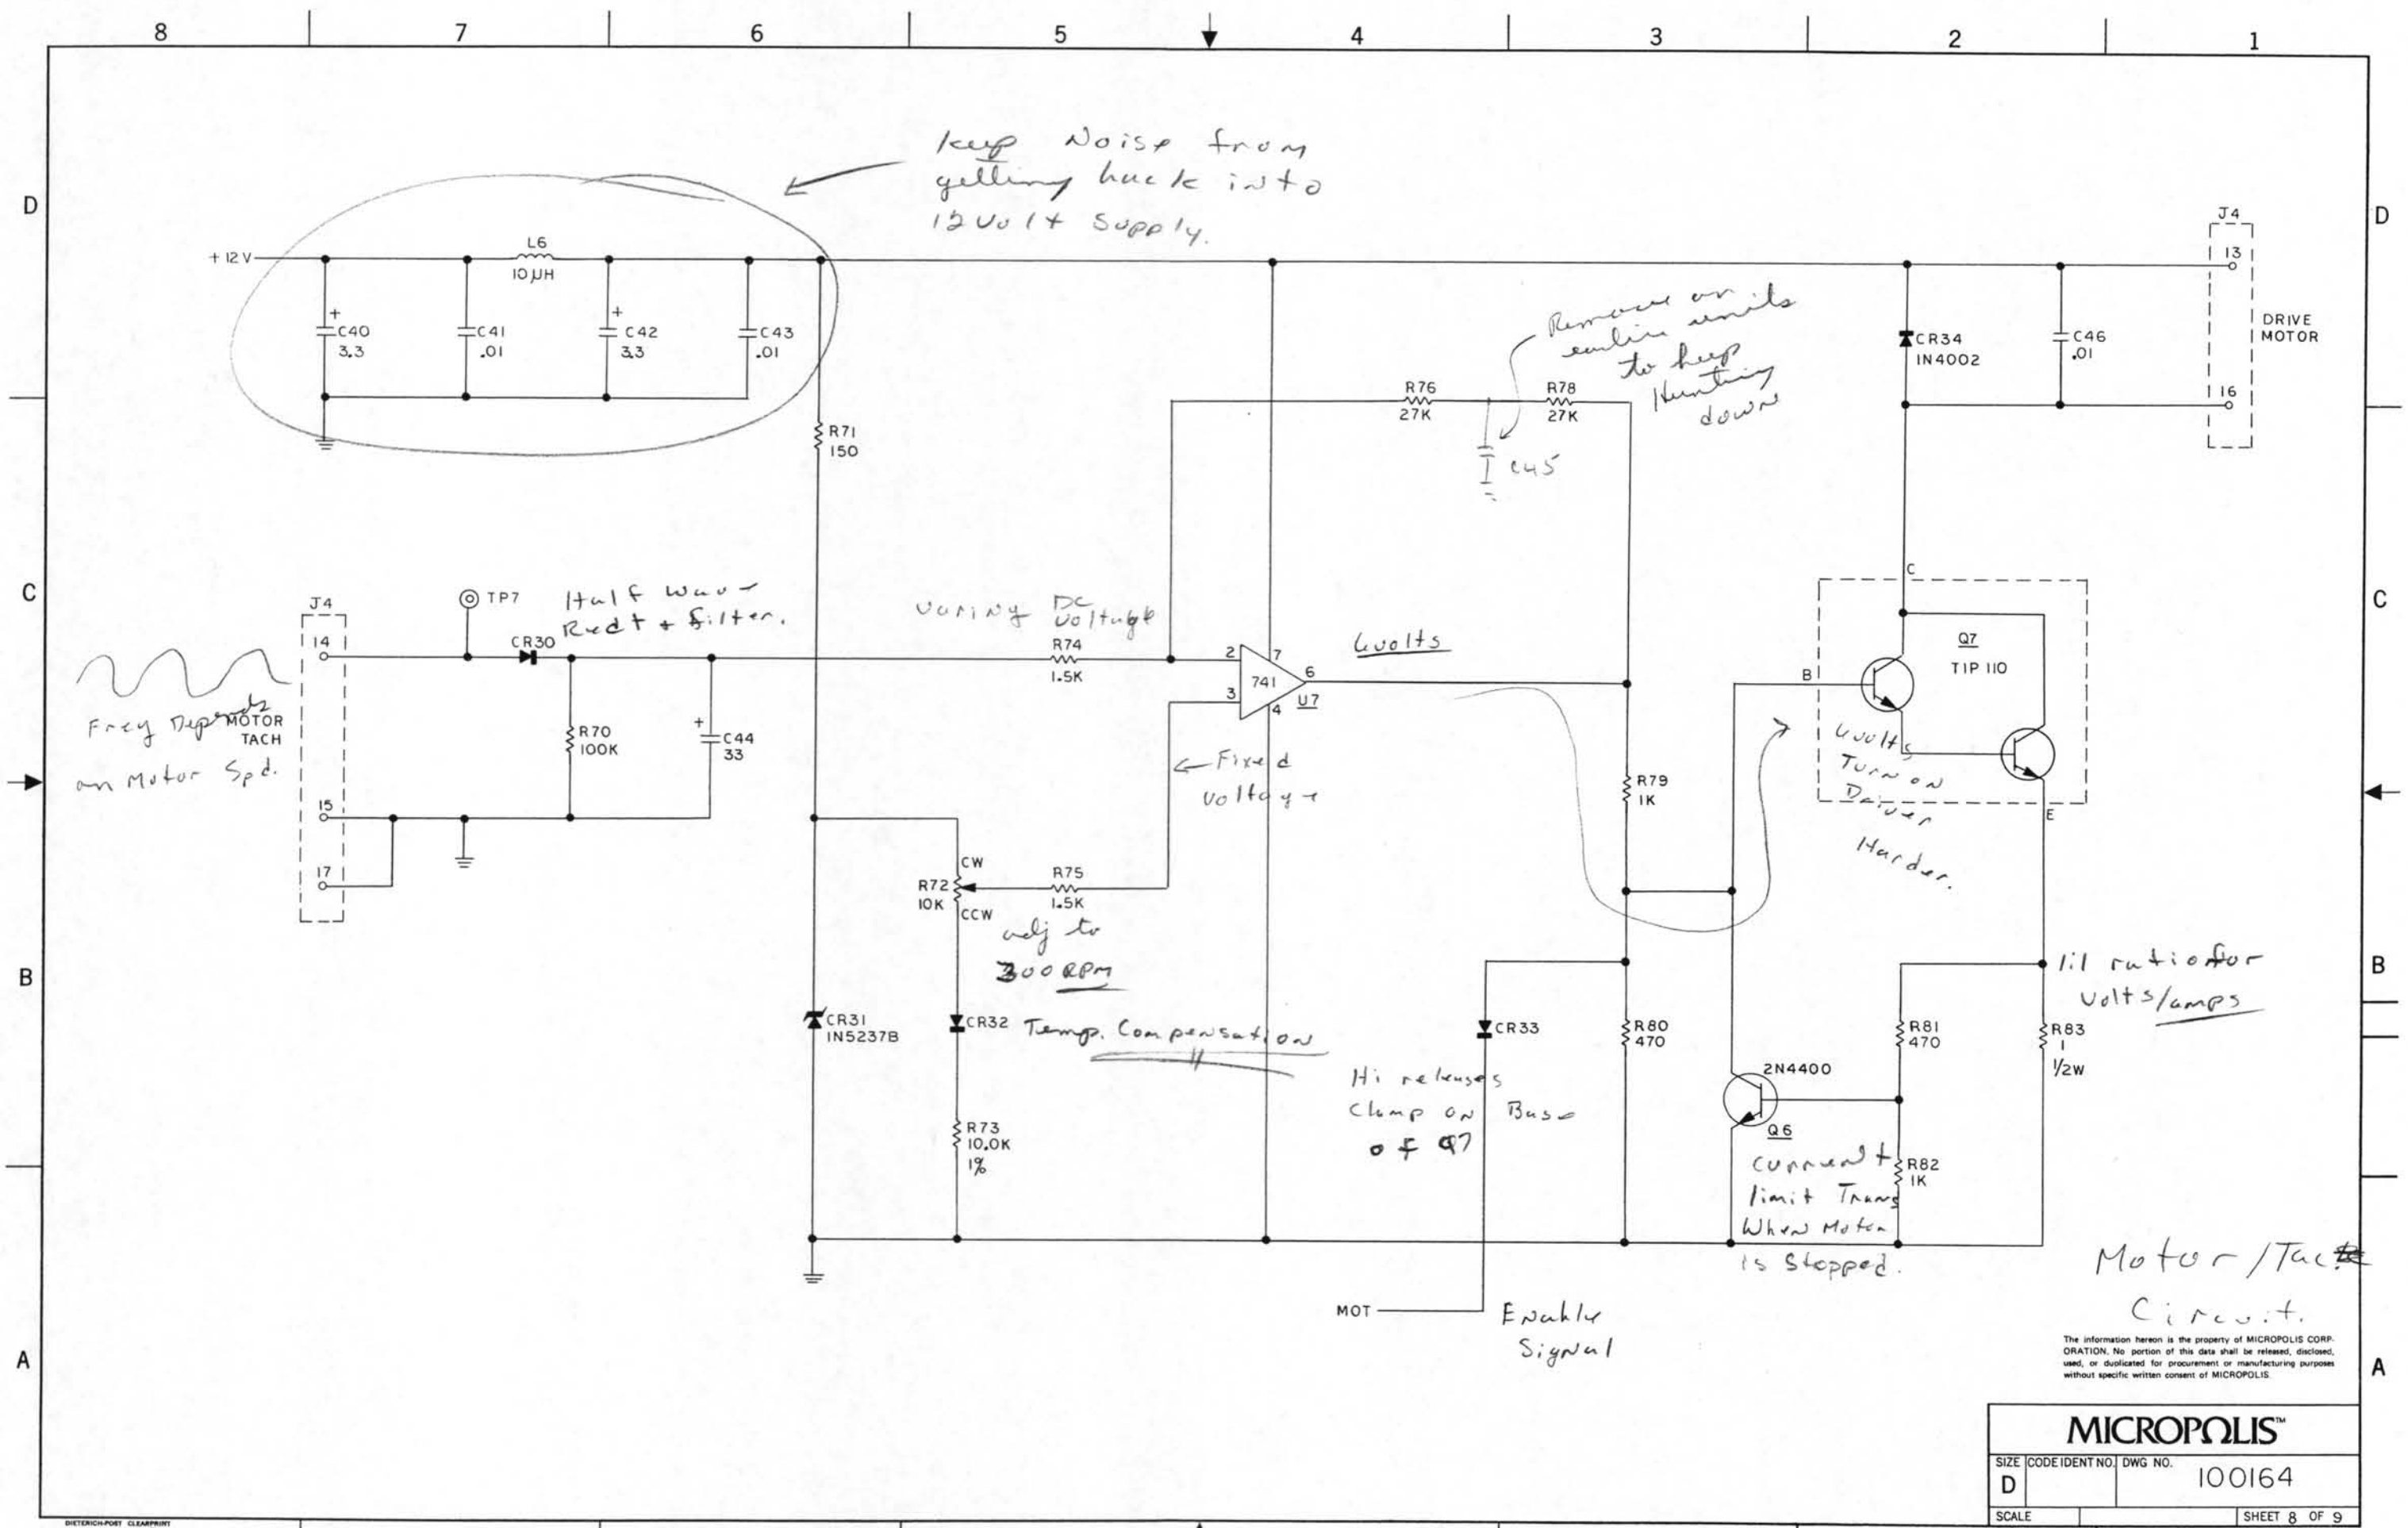 8 7 6 5 4 3 2 1
D
D
keep Noise from
getting back into
12 Volt Supply.
+12V
L6
10 µH
+
C40
3.3
C41
.01
+
C42
3.3
C43
.01
R71
150
Remove on
earlier units
to keep
Hunting
down
R76
27K
R78
27K
C45
CR34
IN4002
C46
.01
J4
13
16
DRIVE
MOTOR
C
C
J4
14
15
17
MOTOR
TACH
Freq Depends
on Motor Spd.
TP7
Half Wave
Rect + filter.
CR30
R70
100K
+
C44
33
varing DC
voltage
R74
1.5K
2
3
7
4
6
741
U7
6volts
Fixed
voltage
R79
1K
C
B
E
Q7
TIP 110
6volts
Turn on
Driver
Harder.
CW
R72
10K
CCW
R75
1.5K
adj to
300 RPM
B
B
CR31
IN5237B
CR32
Temp. Compensation
R73
10.0K
1%
CR33
Hi releases
Clamp on Base
of Q7
R80
470
2N4400
Q6
current
limit Trans
When Motor
is Stopped.
R81
470
R82
1K
R83
1
1/2W
1:1 ratio for
volts/amps
MOT
Enable
Signal
A
A
Motor/Tac
Circuit.
The information hereon is the property of MICROPOLIS CORP-
ORATION. No portion of this data shall be released, disclosed,
used, or duplicated for procurement or manufacturing purposes
without specific written consent of MICROPOLIS.
MICROPOLIS™
SIZE CODE IDENT NO. DWG NO.
D 100164
SCALE SHEET 8 OF 9
DIETERICH-POST CLEARPRINT